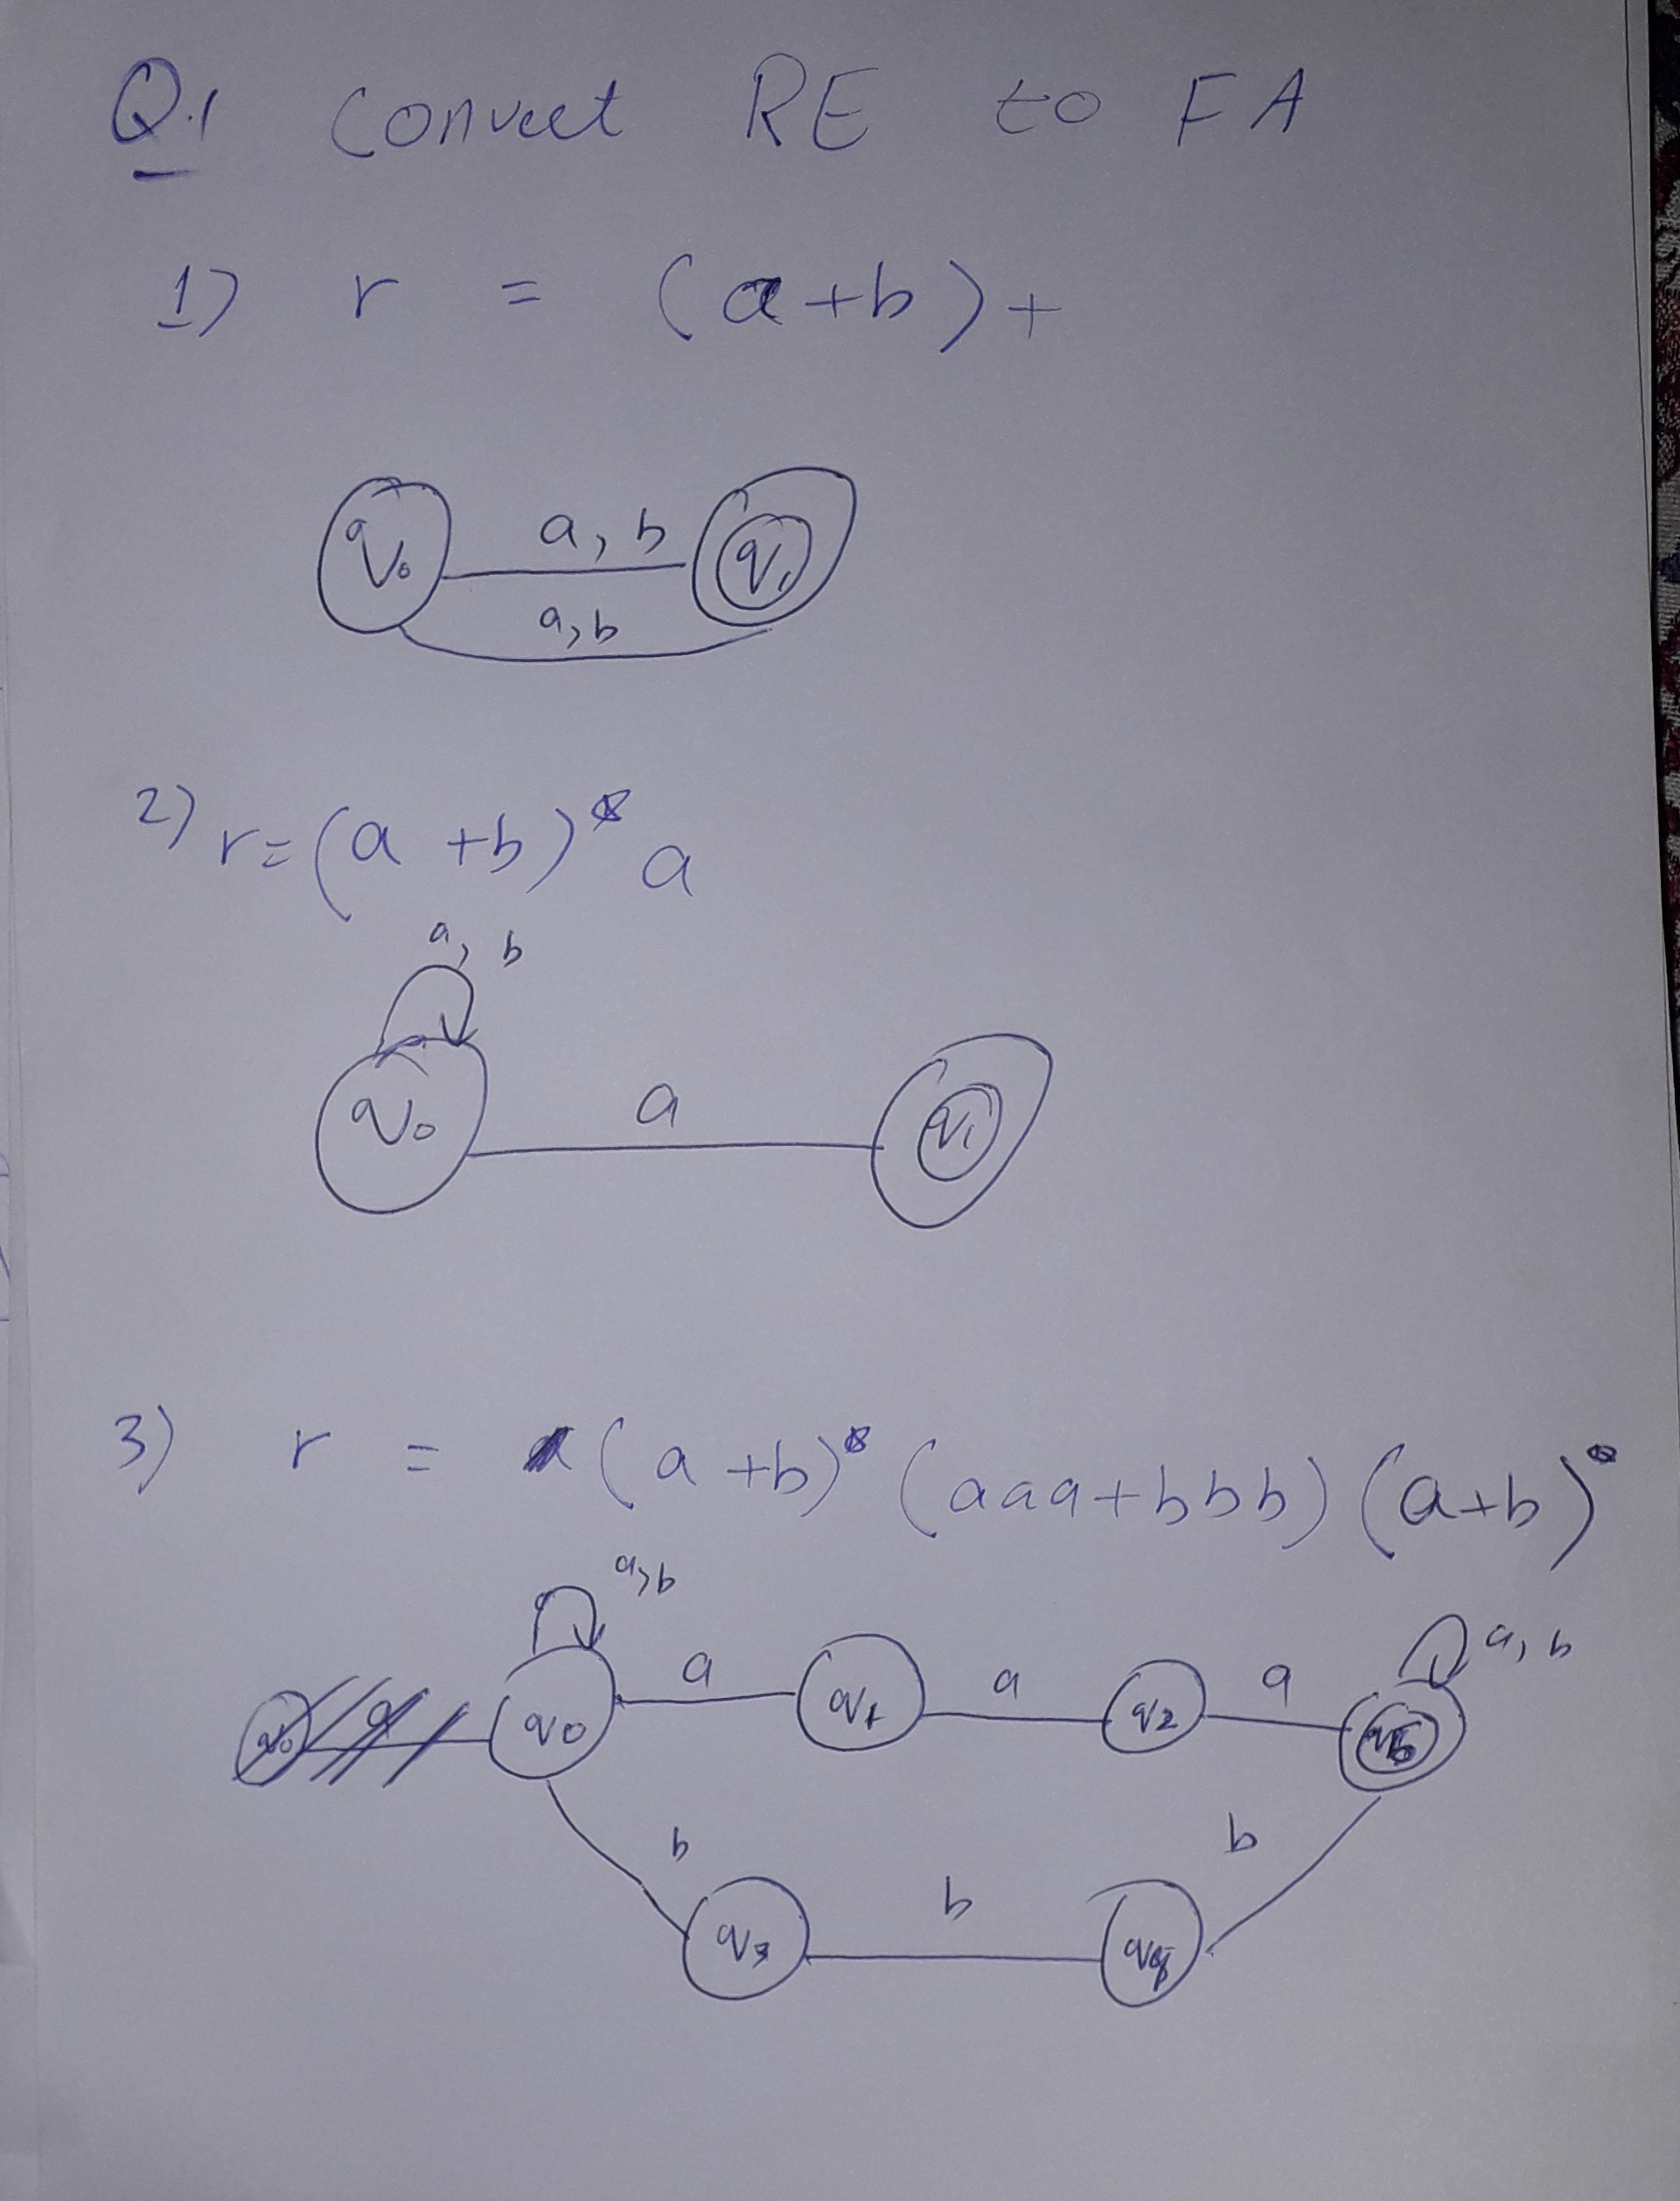 Q.1 Convert RE to FA
1) r = (a+b)+
q0 a, b q1
a,b
2) r=(a+b)* a
a, b
q0 a q1
3) r = (a+b)* (aaa+bbb) (a+b)*
a,b
a, b
q0 a q1 a q2 a
b b
q3 b q4